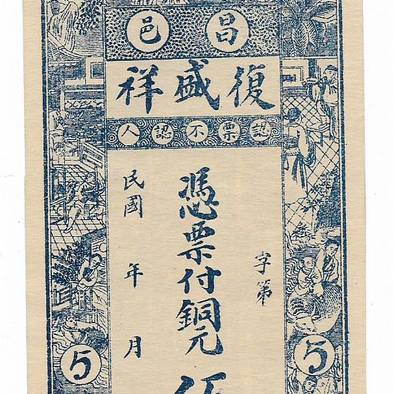 昌邑
復盛祥
認票不認人
字第
憑票付銅元
民國 年 月
5
5